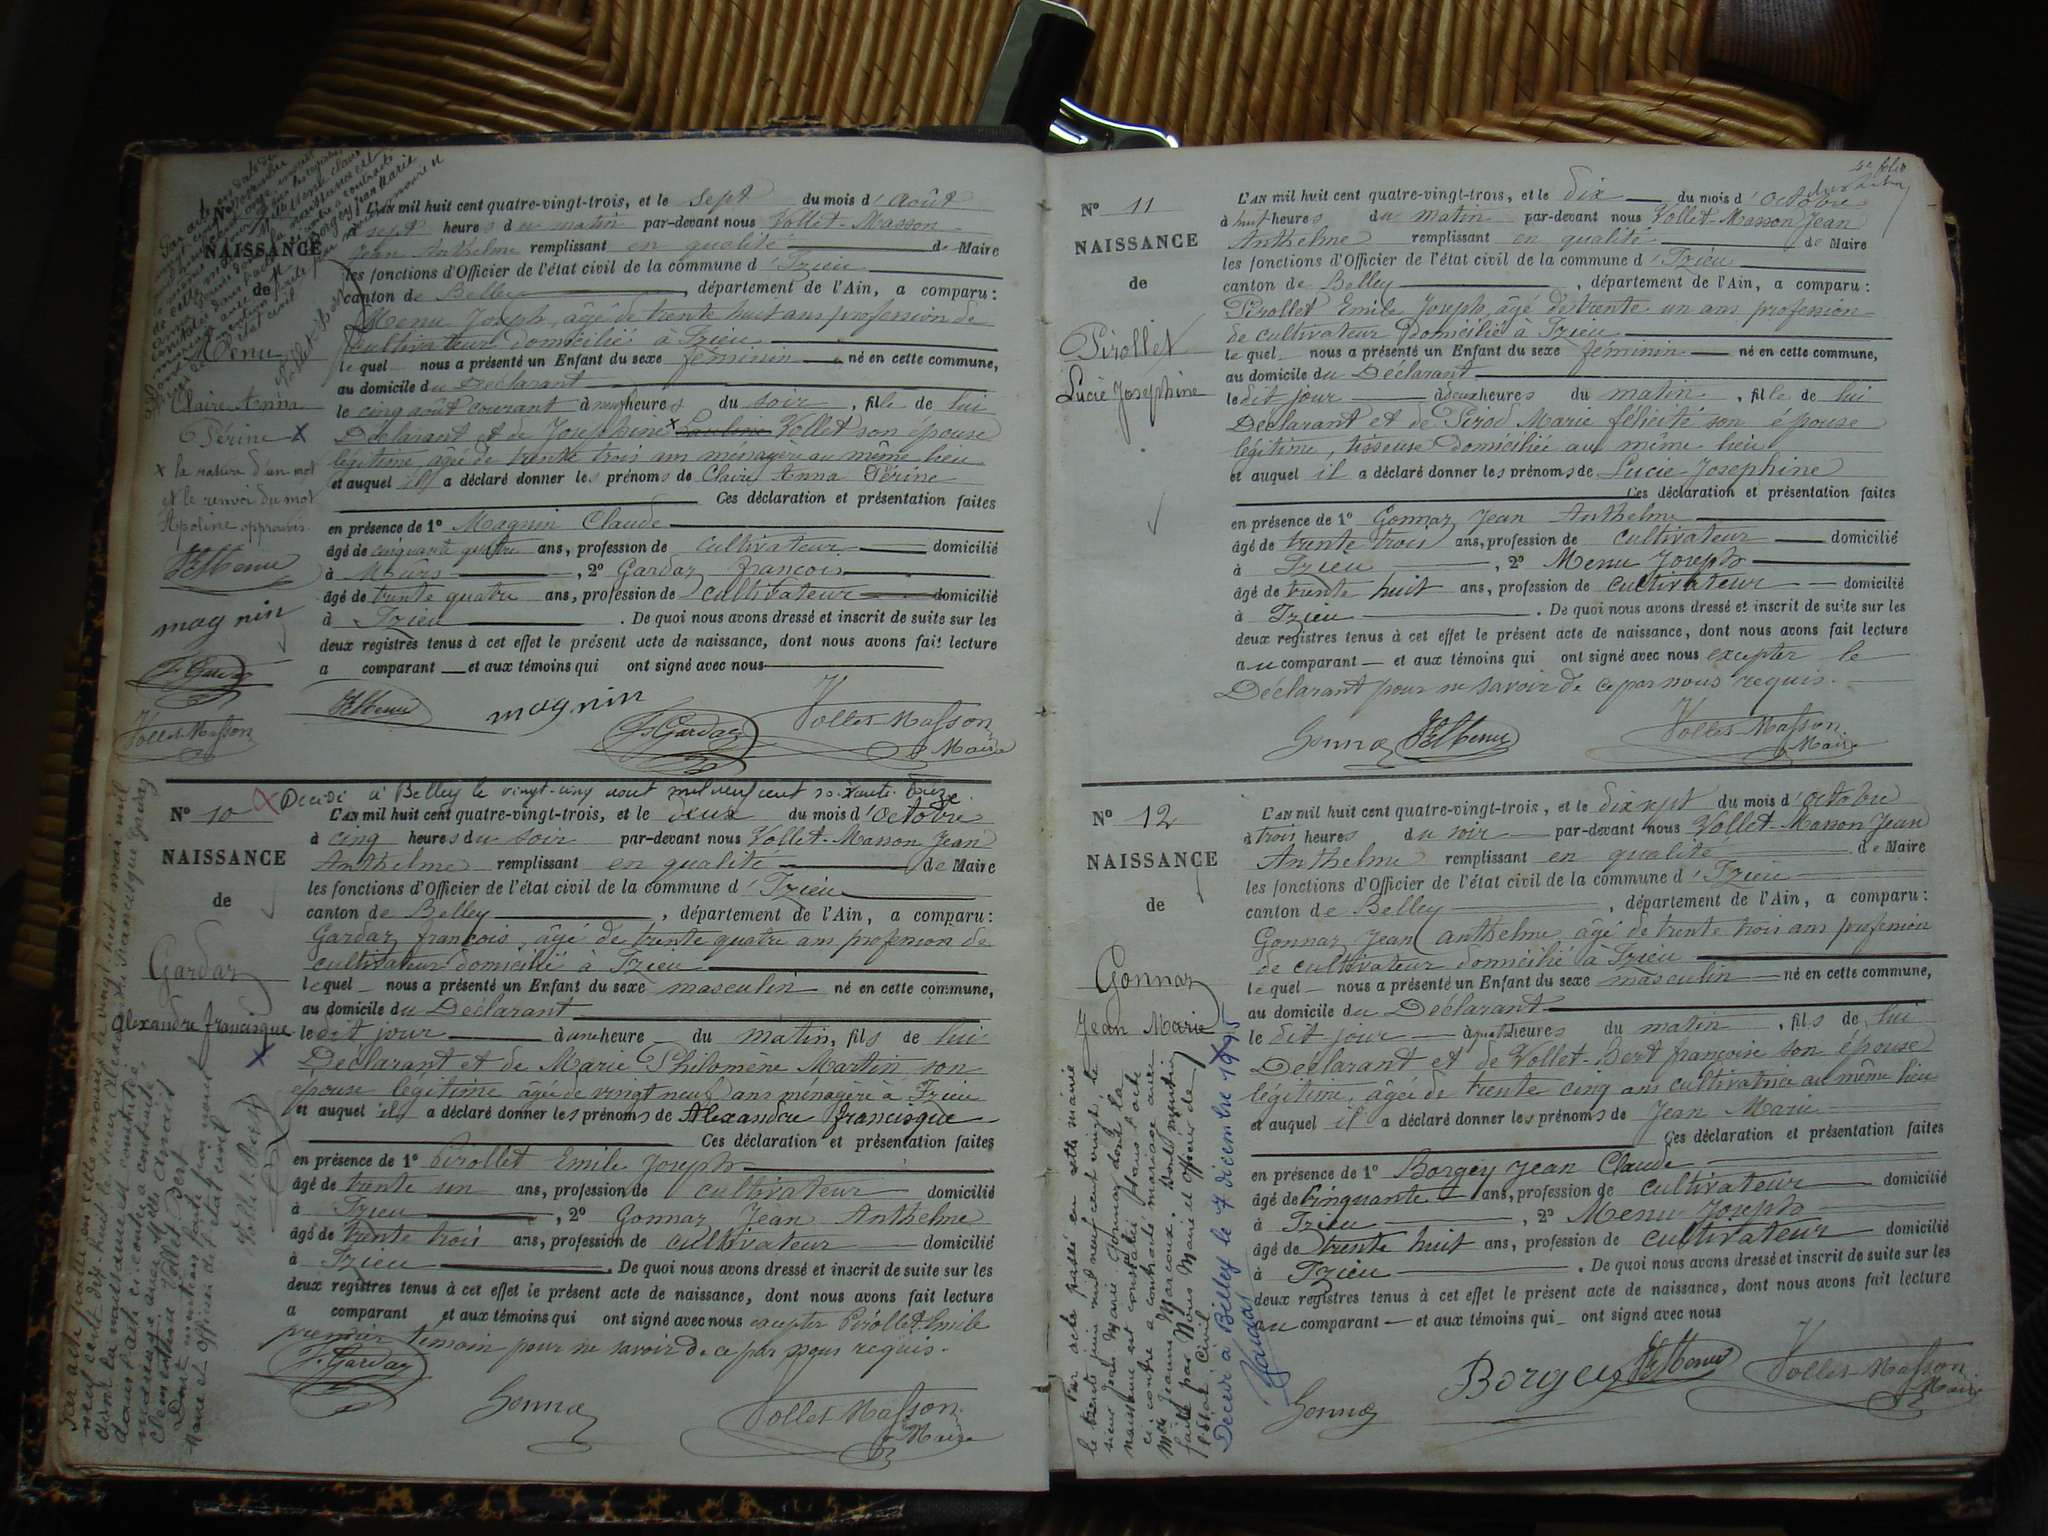 Nº
NAISSANCE
de
Menu
Claire Anna
Périne x
x la rature d'un mot
et le renvoi du mot
Apoline approuvés.
Magnin
F. Gardaz
Vollet-Masson
L'AN mil huit cent quatre-vingt-trois, et le sept du mois d'Août
à sept heures du matin par-devant nous Vollet-Masson
Jean Anthelme remplissant en qualité de Maire
les fonctions d'Officier de l'état civil de la commune d'Izieu
canton de Belley, département de l'Ain, a comparu:
Menu Joseph, âgé de trente huit ans profession de
cultivateur domicilié à Izieu
lequel nous a présenté un Enfant du sexe féminin né en cette commune,
au domicile du Déclarant
le cinq août courant à neuf heures du soir, fille de lui
Déclarant et de Josephine x Vollet son épouse
légitime, âgée de trente trois ans ménagère au même lieu
et auquel il a déclaré donner les prénoms de Claire Anna Périne
Ces déclaration et présentation faites
en présence de 1º Magnin Claude
âgé de cinquante quatre ans, profession de cultivateur domicilié
à Murs, 2º Gardaz françois
âgé de trente quatre ans, profession de cultivateur domicilié
à Izieu. De quoi nous avons dressé et inscrit de suite sur les
deux registres tenus à cet effet le présent acte de naissance, dont nous avons fait lecture
a comparant et aux témoins qui ont signé avec nous
Magnin
F. Gardaz
Vollet-Masson
Maire
Décédé à Belley le vingt-cinq août mil neuf cent soixante treize
Nº 10
NAISSANCE
de
Gardaz
Alexandre francisque
Par acte passé en cette mairie le vingt huit mars mil
neuf cent dix-huit le sieur Alexandre Francisque Gardaz
dont la naissance est constatée
dans l'acte ci-contre a contracté
mariage avec
Clementine Vollet Bert
Dont mention faite par nous
Maire et Officier de l'état civil
Vollet Bert
L'AN mil huit cent quatre-vingt-trois, et le deux du mois d'Octobre
à cinq heures du soir par-devant nous Vollet-Masson Jean
Anthelme remplissant en qualité de Maire
les fonctions d'Officier de l'état civil de la commune d'Izieu
canton de Belley, département de l'Ain, a comparu:
Gardaz françois, âgé de trente quatre ans profession de
cultivateur domicilié à Izieu
lequel nous a présenté un Enfant du sexe masculin né en cette commune,
au domicile du Déclarant
le dit jour à une heure du matin, fils de lui
Déclarant et de Marie Philomène Martin son
epouse légitime âgée de vingt neuf ans ménagère à Izieu
et auquel il a déclaré donner les prénoms de Alexandre francisque
Ces déclaration et présentation faites
en présence de 1º Pirollet Emile Joseph
âgé de trente un ans, profession de cultivateur domicilié
à Izieu, 2º Gonnaz Jean Anthelme
âgé de trente trois ans, profession de cultivateur domicilié
à Izieu. De quoi nous avons dressé et inscrit de suite sur les
deux registres tenus à cet effet le présent acte de naissance, dont nous avons fait lecture
a comparant et aux témoins qui ont signé avec nous excepter Pirollet Emile
premier temoin pour ne savoir de ce par nous requis.
F. Gardaz
Gonnaz
Vollet-Masson
Maire
Nº 11
NAISSANCE
de
Pirollet
Lucie Josephine
L'AN mil huit cent quatre-vingt-trois, et le dix du mois d'Octobre
à huit heures du matin par-devant nous Vollet-Masson Jean
Anthelme remplissant en qualité de Maire
les fonctions d'Officier de l'état civil de la commune d'Izieu
canton de Belley, département de l'Ain, a comparu:
Pirollet Emile Joseph, âgé de trente un ans profession
de cultivateur domicilié à Izieu
lequel nous a présenté un Enfant du sexe féminin né en cette commune,
au domicile du Déclarant
le dit jour à deux heures du matin, fille de lui
Déclarant et de Pirod Marie félicité son épouse
légitime, tisseuse domiciliée au même lieu
et auquel il a déclaré donner les prénoms de Lucie Josephine
Ces déclaration et présentation faites
en présence de 1º Gonnaz Jean Anthelme
âgé de trente trois ans, profession de cultivateur domicilié
à Izieu, 2º Menu Joseph
âgé de trente huit ans, profession de cultivateur domicilié
à Izieu. De quoi nous avons dressé et inscrit de suite sur les
deux registres tenus à cet effet le présent acte de naissance, dont nous avons fait lecture
au comparant et aux témoins qui ont signé avec nous excepter le
Déclarant pour ne savoir de ce par nous requis.
Gonnaz
Vollet-Masson
Maire
Nº 12
NAISSANCE
de
Gonnaz
Jean Marie
Par acte passé en cette mairie
le trente juin mil neuf cent vingt, le
sieur Jean Marie Gonnaz dont la
naissance est constatée dans l'acte
ci-contre a contracté mariage avec
Jeanne Marcoux. Dont mention
faite par Nous Maire et Officier de
l'état civil
Décédé à Belley le 7 décembre 1955
L'AN mil huit cent quatre-vingt-trois, et le dix sept du mois d'Octobre
à trois heures du soir par-devant nous Vollet-Masson Jean
Anthelme remplissant en qualité de Maire
les fonctions d'Officier de l'état civil de la commune d'Izieu
canton de Belley, département de l'Ain, a comparu:
Gonnaz Jean anthelme âgé de trente trois ans profession
de cultivateur domicilié à Izieu
lequel nous a présenté un Enfant du sexe masculin né en cette commune,
au domicile du Déclarant
le dit jour à quatre heures du matin, fils de lui
Déclarant et de Vollet-Bert françoise son épouse
légitime, âgée de trente cinq ans cultivatrice au même lieu
et auquel il a déclaré donner les prénoms de Jean Marie
Ces déclaration et présentation faites
en présence de 1º Borgey Jean Claude
âgé de cinquante ans, profession de cultivateur domicilié
à Izieu, 2º Menu Joseph
âgé de trente huit ans, profession de cultivateur domicilié
à Izieu. De quoi nous avons dressé et inscrit de suite sur les
deux registres tenus à cet effet le présent acte de naissance, dont nous avons fait lecture
au comparant et aux témoins qui ont signé avec nous
Gonnaz
Borgey
Vollet-Masson
Maire